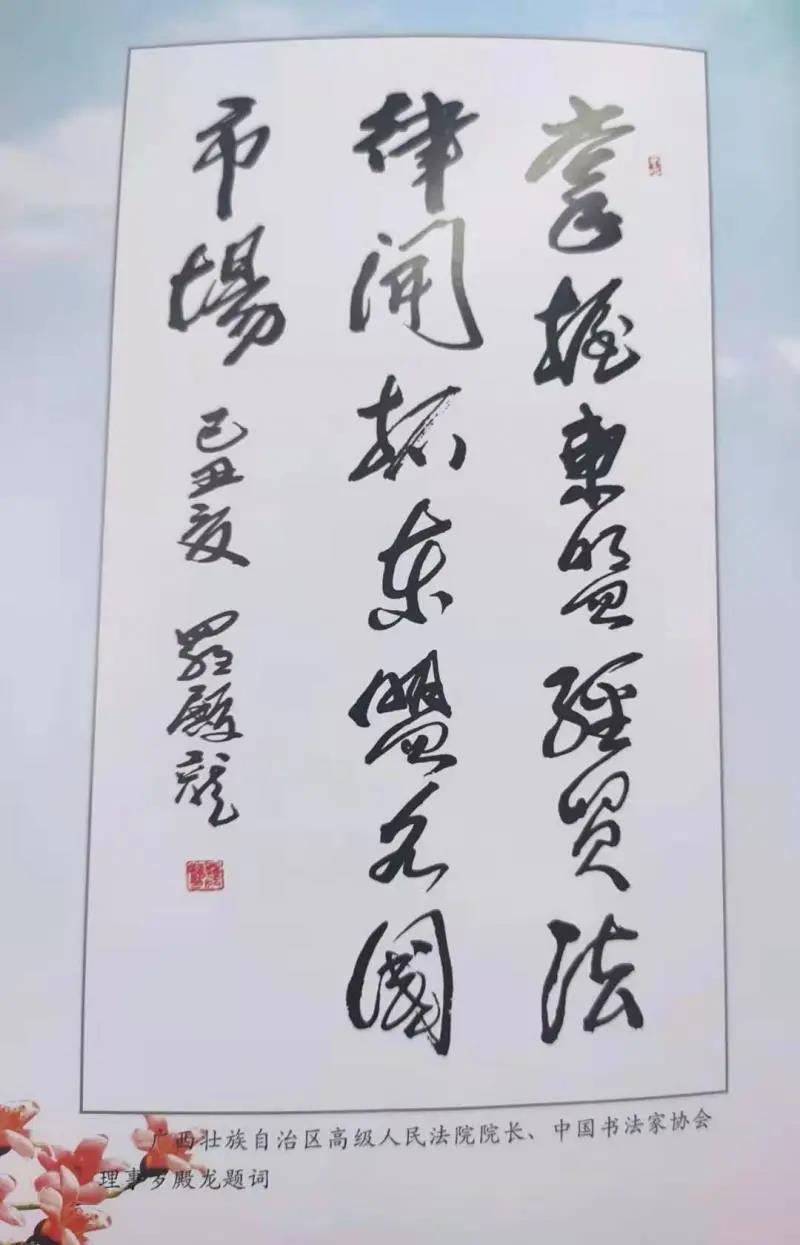 掌握東盟經貿法
律開拓東盟各國
市場 己丑夏 羅殿龍
广西壮族自治区高级人民法院院长、中国书法家协会
理事罗殿龙题词